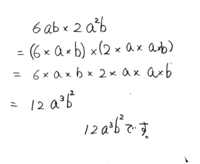 6ab × 2a²b
= (6 × a × b) × (2 × a × a × b)
= 6 × a × b × 2 × a × a × b
= 12a³b²
12a³b²です。